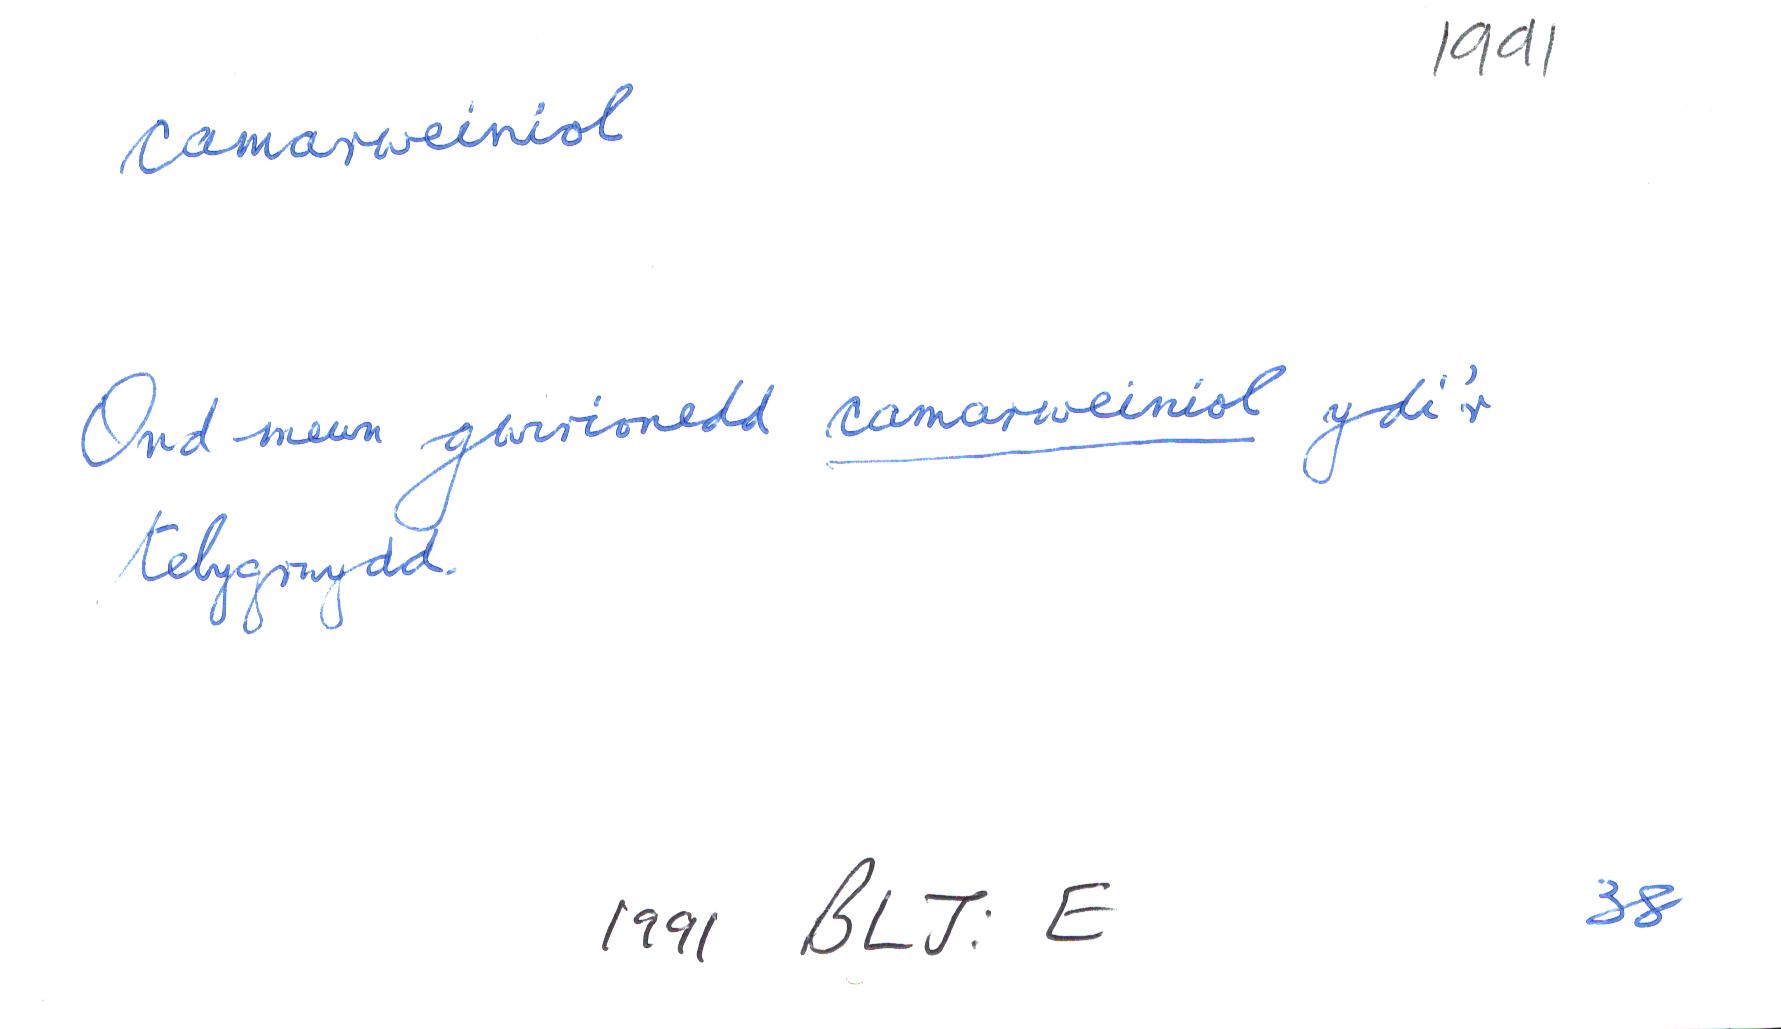 1991
camarweiniol
Ond mewn gwirionedd camarweiniol ydi'r
tebygrwydd.
1991 BLJ: E 38